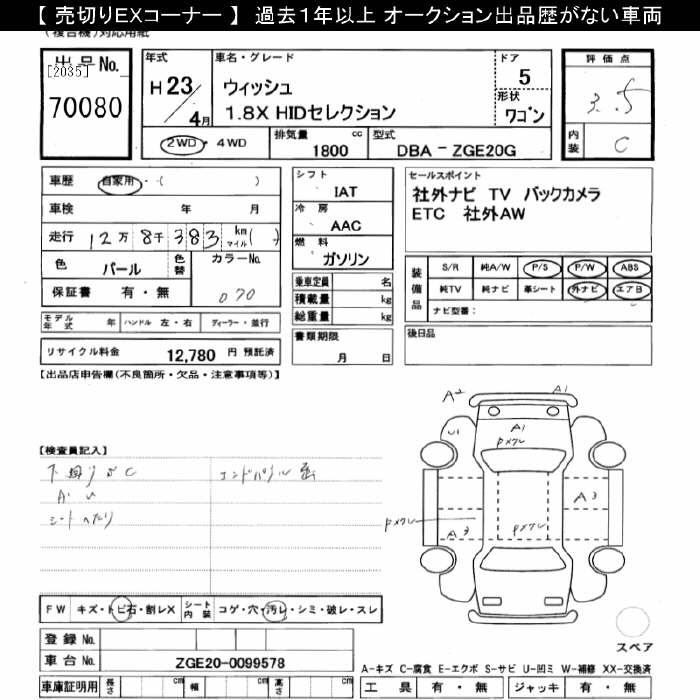 【 売切りEXコーナー 】 過去1年以上 オークション出品歴がない車両
(複合機)対応用紙
出 品 No.
[2035]
70080
年式
H 23 / 4 月
車名・グレード
ウィッシュ
1.8X HIDセレクション
ドア
5
形状
ワゴン
評 価 点
3.5
内装
C
2WD ・ 4WD
排気量 cc
1800
型式
DBA － ZGE20G
車歴 自家用 ・( )
車検 年 月
走行 12 万 8 千 3 8 3 km マイル ( )
色 パール
色替
カラーNo.
070
保証書 有 ・ 無
シフト
IAT
冷 房
AAC
燃 料
ガソリン
乗車定員 名
積載量 kg
総重量 kg
セールスポイント
社外ナビ TV バックカメラ
ETC 社外AW
装備品
S/R 純A/W P/S P/W ABS
純TV 純ナビ 革シート 外ナビ エアB
ナビ型番：
モデル年式 年 ハンドル 左・右 ディーラー・並行
リサイクル料金 12,780 円 預託済
書類期限
月 日
後日品
【出品店申告欄(不良箇所・欠品・注意事項等)】
【検査員記入】
下回りサC エンドパネル歪
A・U
シートへたり
A2
A1
U1
A1
Pメクレ
A3
Pメクレ
Pメクレ
A3
スペア
FW キズ・トビ石・割レX シート内装 コゲ・穴・汚レ・シミ・破レ・スレ
登 録 No.
車 台 No. ZGE20-0099578
車庫証明用 長さ cm 幅 cm 高さ cm
A-キズ C-腐食 E-エクボ S-サビ U-凹ミ W-補修 XX-交換済
工 具 有 ・ 無 ジャッキ 有 ・ 無